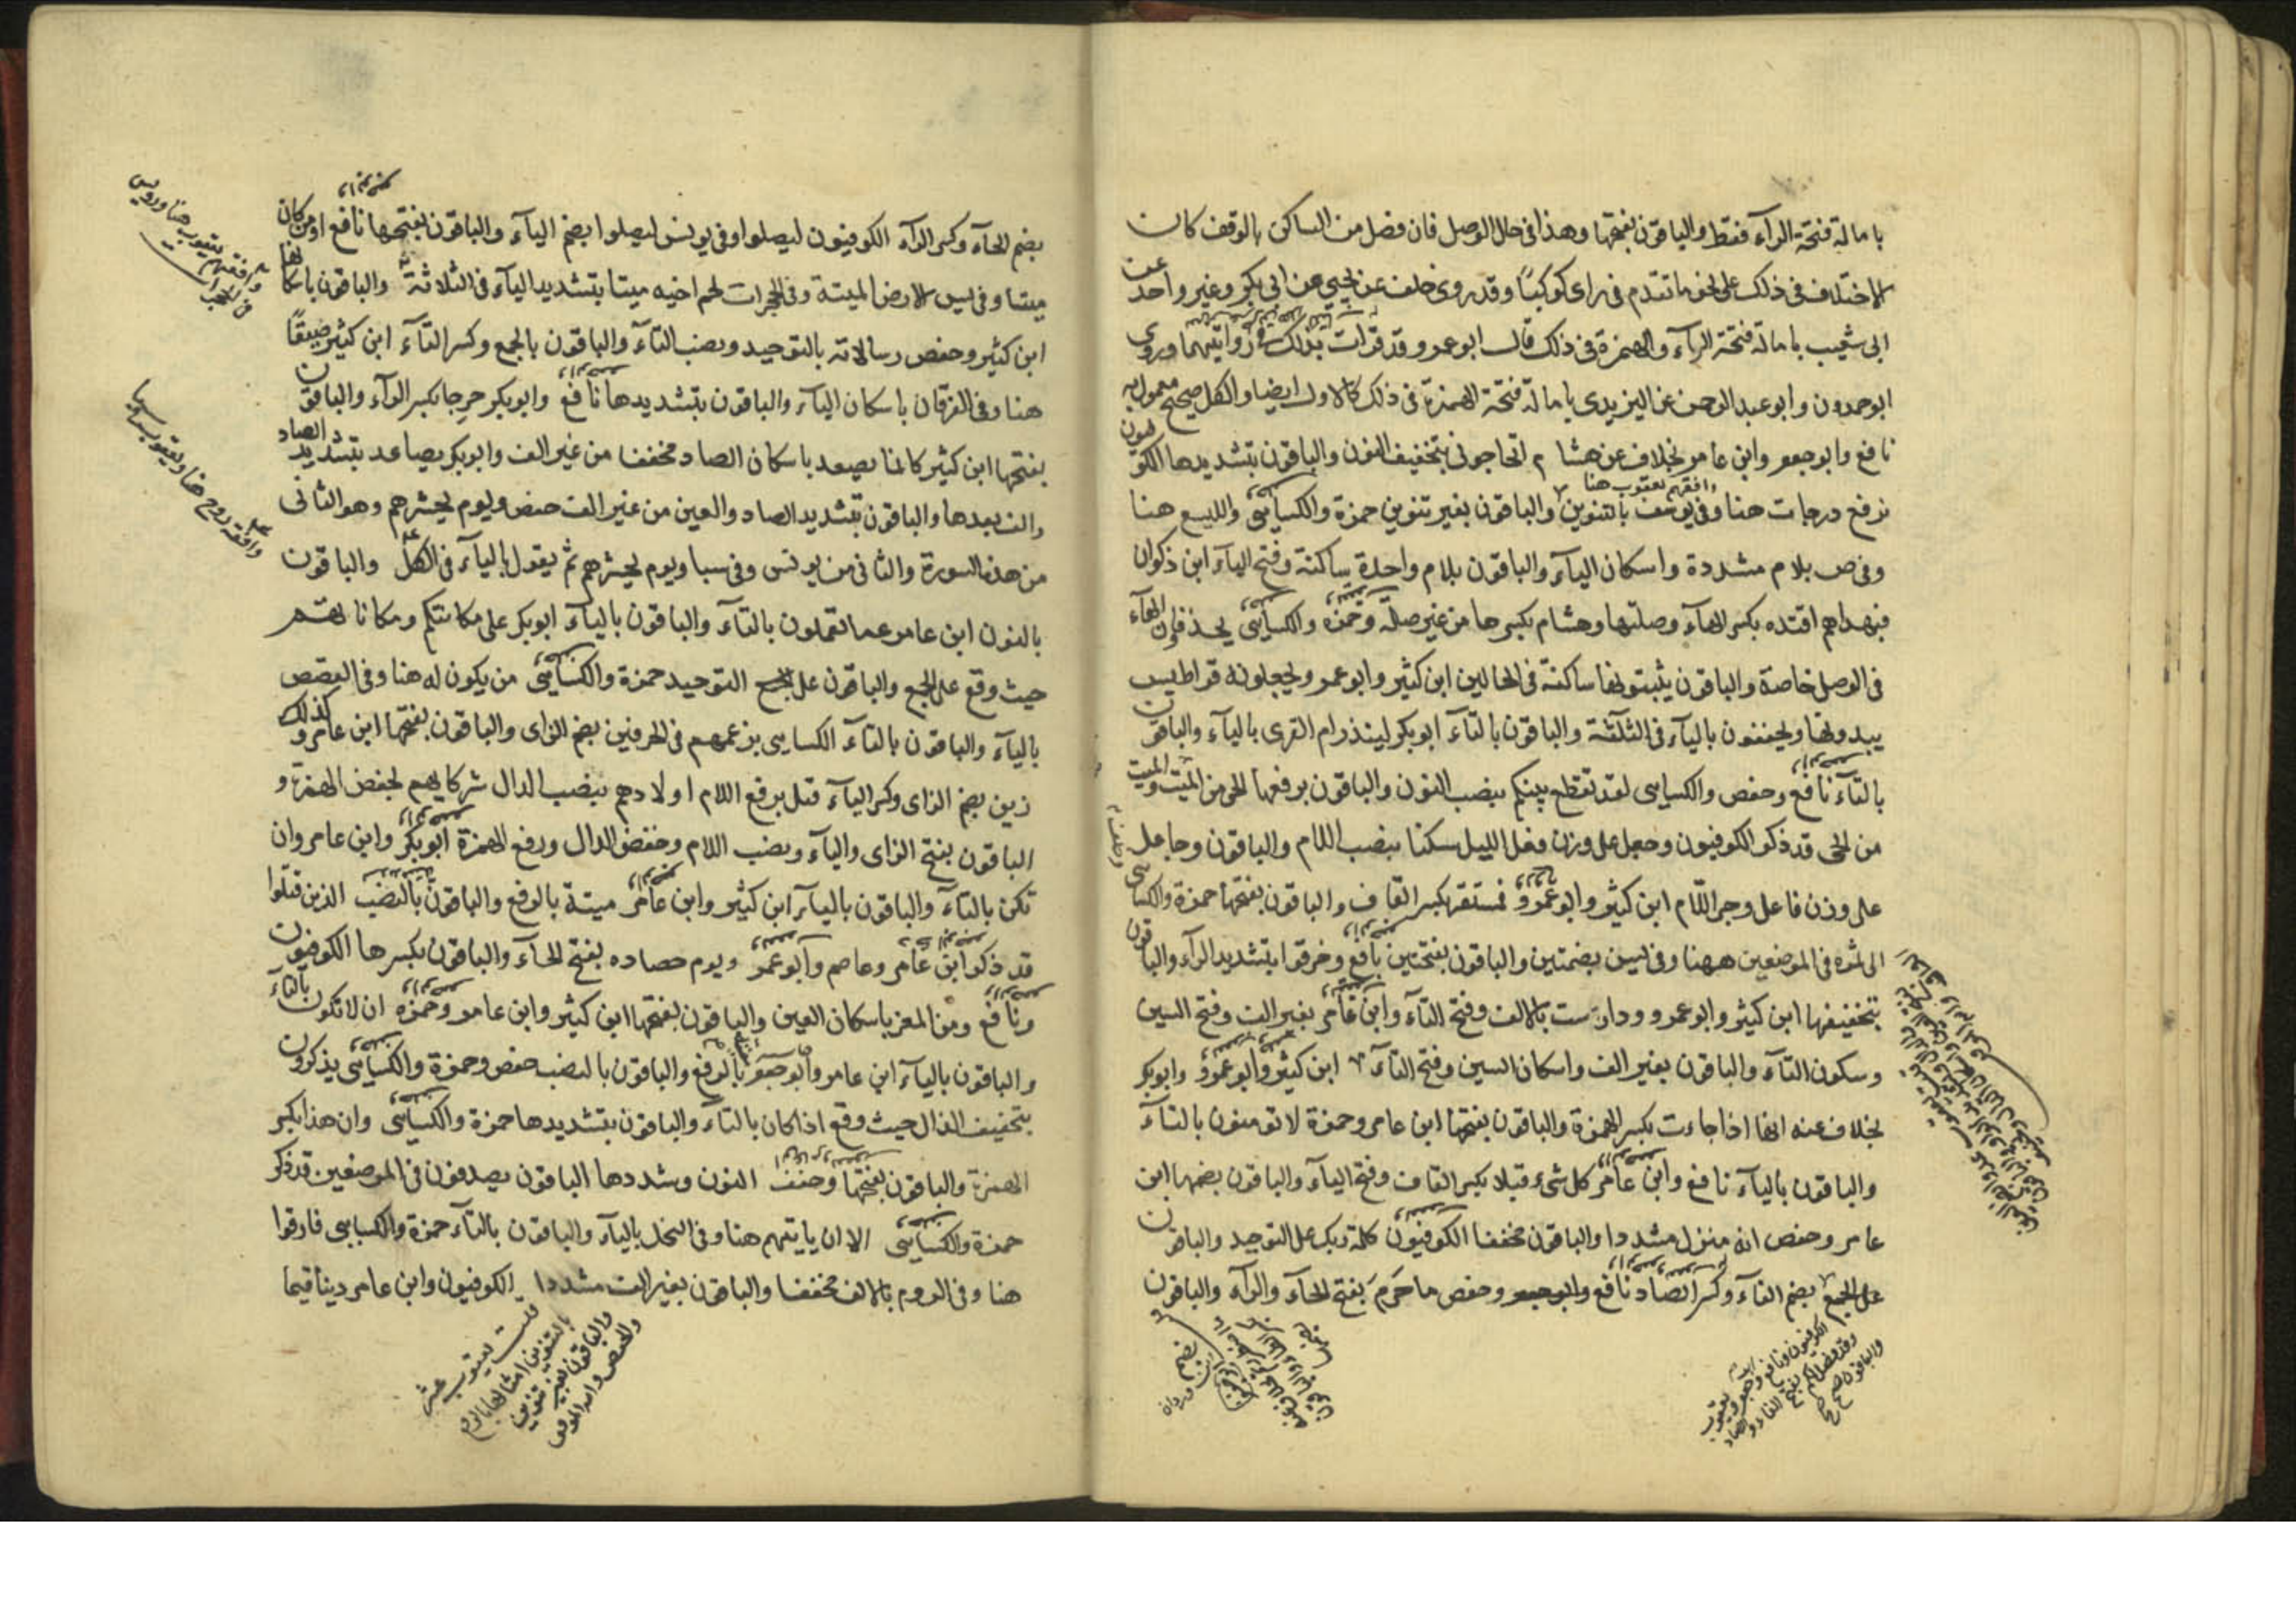 بامالة فتحة الرآء فقط والباقون بفتحها وهذا فى حال الوصل فان فصل من الساكن بالوقف كان
الاختلاف فى ذلك على نحو ما تقدم فى راى كوكبًا وقد روى خلف عن يحيى عن ابى بكر وغير واحد عن
ابى شعيب بامالة فتحة الرآء والهمزة فى ذلك قال ابو عمرو وقد قرات بذلك فى روايتهما وروى
ابو حمدون وابو عبد الرحمن عن اليزيدى بامالة فتحة الهمزة فى ذلك كالاول ايضا والكل صحيح معمول به
نافع وابو جعفر وابن عامر بخلاف عن هشام اتحاجونى بتخفيف النون والباقون بتشديدها الكوفيون
نرفع درجات هنا وفى يوسف بالتنوين والباقون بغير تنوين حمزة والكسايى والليسع هنا
وافقهم يعقوب هنا
وفى ص بلام مشددة واسكان اليآء والباقون بلام واحدة ساكنة وفتح اليآء ابن ذكوان
فبهداهم اقتده بكسر الهآء وصلتها وهشام بكسرها من غير صلة وحمزه والكسايى يحذفان الهآء
فى الوصل خاصة والباقون يثبتونها ساكنة فى الحالين ابن كثير وابو عمرو يجعلونه قراطيس
يبدونها ويخفون باليآء فى الثلثة والباقون بالتآء ابو بكر لينذر ام القرى باليآء والباقون
بالتآء نافع وحفص والكسايى لقد تقطع بينكم بنصب النون والباقون برفعها الحى من الميت والميت
من الحى قد ذكر الكوفيون وجعل على وزن فعل الليل سكنا بنصب اللام والباقون وجاعل
على وزن فاعل وجر اللام ابن كثير وابو عمرو فمستقر بكسر القاف والباقون بفتحها حمزة والكسايى
الى ثمره فى الموضعين ههنا وفى يس بضمتين والباقون بفتحتين نافع وخرقوا بتشديد الرآء والباقون
بتخفيفها ابن كثير وابو عمرو ودارست بالالف وفتح التآء وابن عامر بغير الف وفتح السين
وسكون التآء والباقون بغير الف واسكان السين وفتح التآء ابن كثير وابو عمرو وابو بكر
بخلاف عنه انها اذا جاءت بكسر الهمزة والباقون بفتحها ابن عامر وحمزة لا تومنون بالتآء
والباقون باليآء نافع وابن عامر كل شىء قبلا بكسر القاف وفتح اليآء والباقون بضمها ابن
عامر وحفص انه منزل مشددا والباقون مخففا الكوفيون كلمة ربك على التوحيد والباقون
على الجمع بضم الفآء وكسر الصاد نافع وابو جعفر وحفص ما حرم بفتح الحآء والرآء والباقون
بضم الحآء وكسر الرآء الكوفيون ليضلوا وفى يونس ليضلوا بضم اليآء والباقون بفتحها نافع اومن كان
ميتا وفى يس الارض الميتة وفى الحجرات لحم اخيه ميتا بتشديد اليآء فى الثلاثة والباقون باسكانها
ابن كثير وحفص رسالاته بالتوحيد ونصب التآء والباقون بالجمع وكسر التآء ابن كثير ضيقًا
هنا وفى الفرقان باسكان اليآء والباقون بتشديدها نافع وابو بكر حرجا بكسر الرآء والباقون
بفتحها ابن كثير كانما يصعد باسكان الصاد مخففا من غير الف وابو بكر يصاعد بتشديد الصاد
والف بعدها والباقون بتشديد الصاد والعين من غير الف حفص ويوم يحشرهم وهو الثانى
من هذه السورة والثانى من يونس وفى سبا ويوم يحشرهم ثم يقول باليآء فى الكل والباقون
بالنون ابن عامر عما تعملون بالتآء والباقون باليآء ابو بكر على مكانتكم ومكاناتهم
حيث وقع على الجمع والباقون على التوحيد حمزة والكسايى من يكون له هنا وفى القصص
باليآء والباقون بالتآء الكسايى بزعمهم فى الحرفين بضم الزاى والباقون بفتحها ابن عامر وكذلك
زين بضم الزاى وكسر اليآء قتل برفع اللام اولادهم بنصب الدال شركايهم بخفض الهمزة و
الباقون بفتح الزاى واليآء ونصب اللام وخفض الدال ورفع الهمزة ابو بكر وابن عامر وان
تكن بالتآء والباقون باليآء ابن كثير وابن عامر ميتة بالرفع والباقون بالنصب الذين قتلوا
قد ذكر ابن عامر وعاصم وابو عمرو يوم حصاده بفتح الحآء والباقون بكسرها الكوفيون
ونافع ومن المعز باسكان العين والباقون بفتحها ابن كثير وابن عامر وحمزه ان لا تكون بالتآء
والباقون باليآء ابن عامر وابو جعفر بالرفع والباقون بالنصب حفص وحمزة والكسايى يذكرون
بتخفيف الذال حيث وقع اذا كان بالتآء والباقون بتشديدها حمزة والكسايى وان هذا بكسر
الهمزة والباقون بفتحها وخفف النون وشددها الباقون يصدفون فى الموضعين قد ذكر
حمزة والكسايى الا ان ياتيهم هنا وفى النحل باليآء والباقون بالتآء حمزة والكسايى فارقوا
هنا وفى الروم بالالف مخففا والباقون بغير الف مشددا الكوفيون وابن عامر دينا قيما
قلت يعقوب عشر
بالتنوين امثالها بالرفع
والباقون بغير تنوين
والخفض والله الموفق